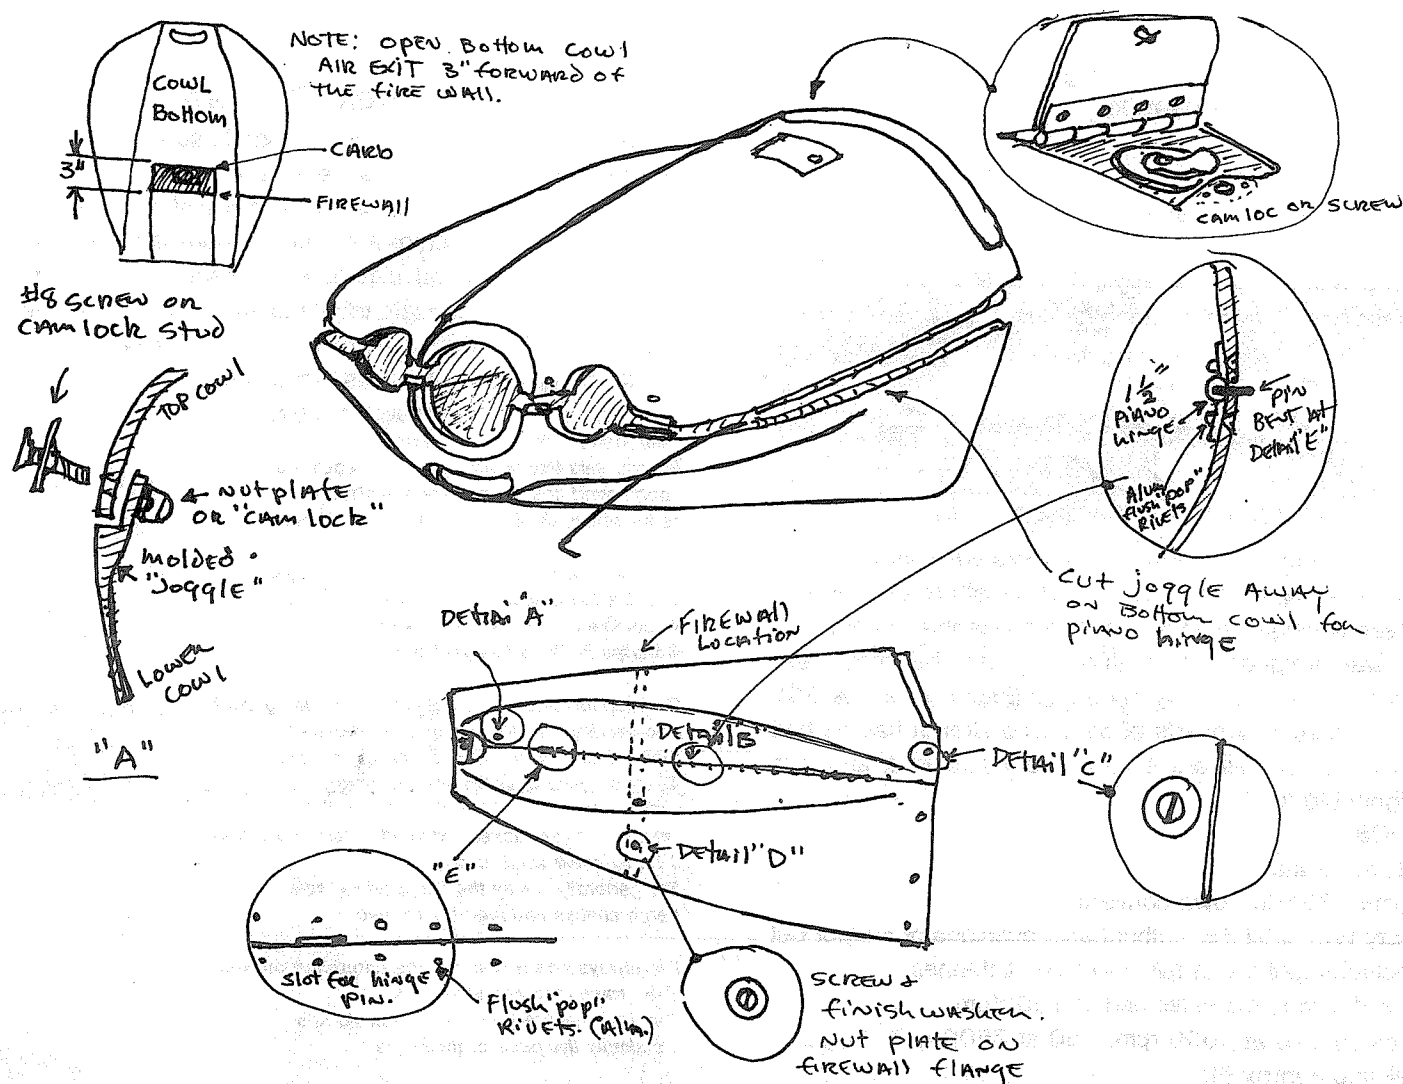 NOTE: OPEN Bottom Cowl
AIR EXIT 3" forward of
the fire wall.
Cowl
Bottom
3"
CARB
FIREWALL
camloc or screw
#8 screw or
camlock stud
TOP COWL
Nutplate
or "cam lock"
Molded
"Joggle"
Lower
cowl
"A"
1 1/2"
Piano
hinge
Pin
Bent at
Detail "E"
Alum
flush "pop"
Rivets
Cut joggle away
on Bottom cowl for
piano hinge
Detail "A"
Firewall
Location
Detail "B"
Detail "C"
Detail "D"
"E"
Slot for hinge
Pin.
Flush "pop"
Rivets. (Alum.)
Screw &
finish washer.
Nut plate on
firewall flange